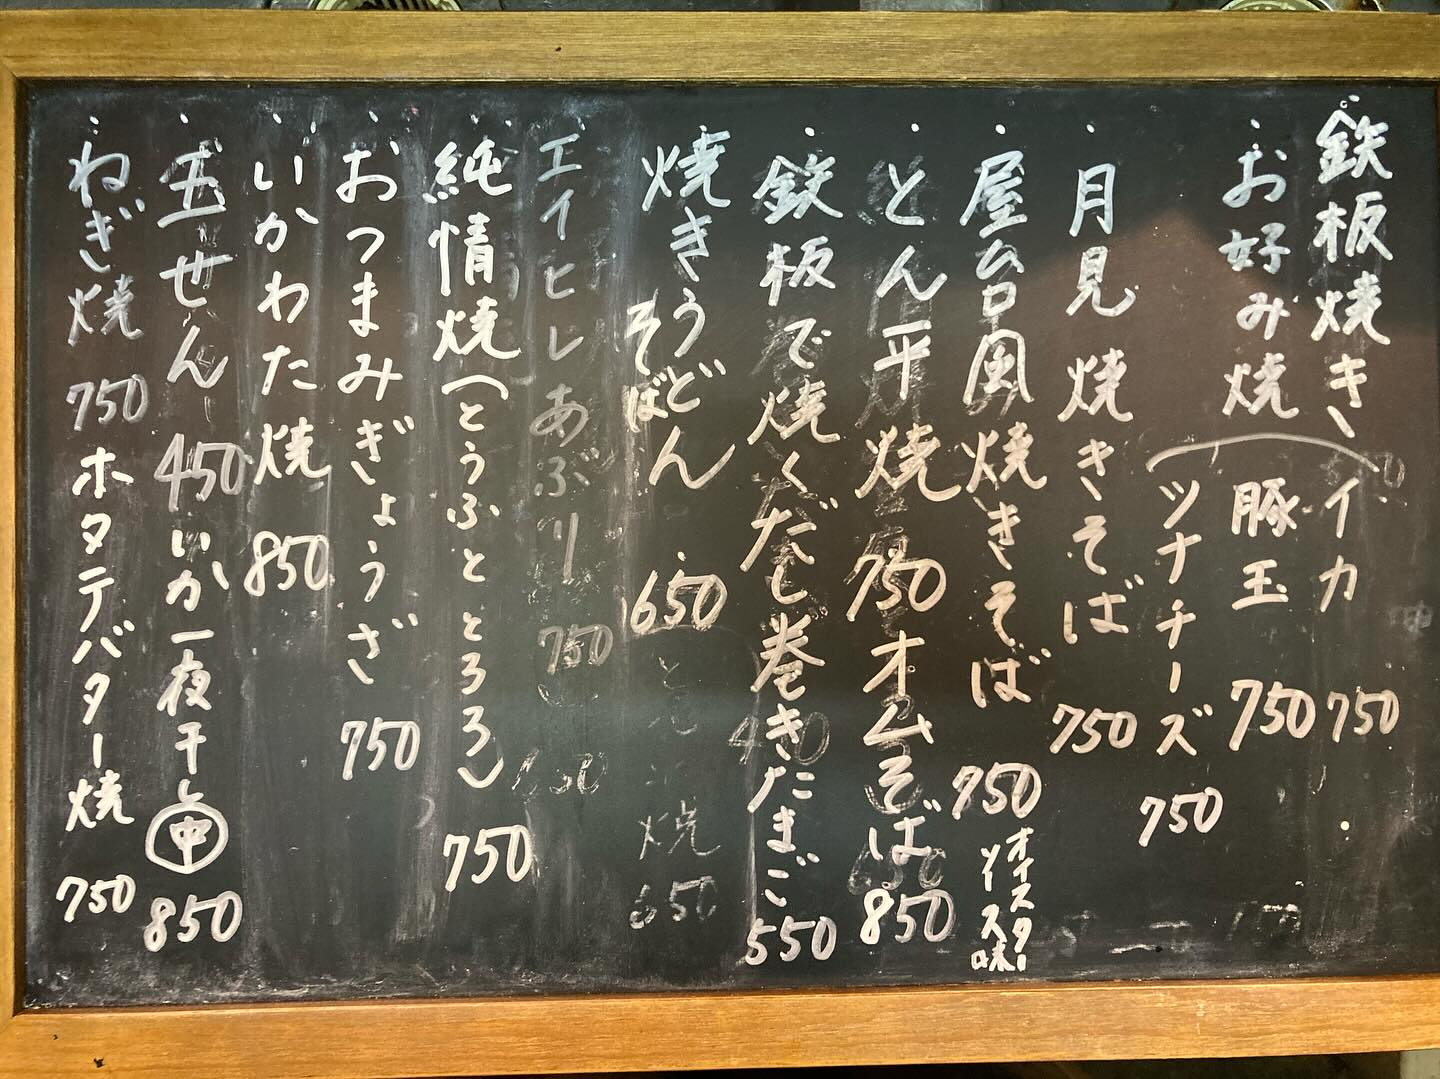 鉄板焼き イカ 750
お好み焼 豚玉 750
ツナチーズ 750
月見焼きそば 750
屋台風焼きそば 750 オイスターソース味
とん平焼 750 オムそば 850
鉄板で焼くだし巻きたまご 550
焼きうどん 650
そば
エイヒレあぶり 750
純情焼(とうふととろろ) 750
おつまみぎょうざ 750
いかわた焼 850
玉せん 450 いか一夜干し 中 850
ねぎ焼 750 ホタテバター焼 750
焼 650